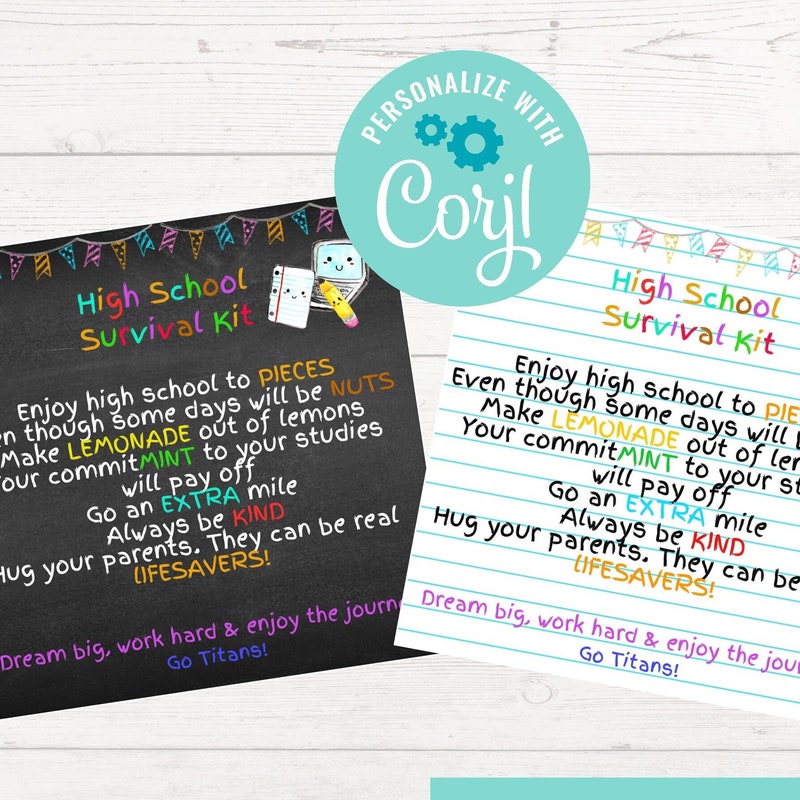 PERSONALIZE WITH
Corjl
High School
Survival Kit
Enjoy high school to PIECES
though some days will be NUTS
Make LEMONADE out of lemons
Your commitMINT to your studies
will pay off
Go an EXTRA mile
Always be KIND
Hug your parents. They can be real
LIFESAVERS!
Dream big, work hard & enjoy the
Go Titans!
High School
Survival Kit
Enjoy high school to
Even though some days will
Make LEMONADE out of
Your commitMINT to your studies
will pay off
Go an EXTRA mile
Always be KIND
Hug your parents. They can be
LIFESAVERS!
Dream big, work hard & enjoy the
Go Titans!